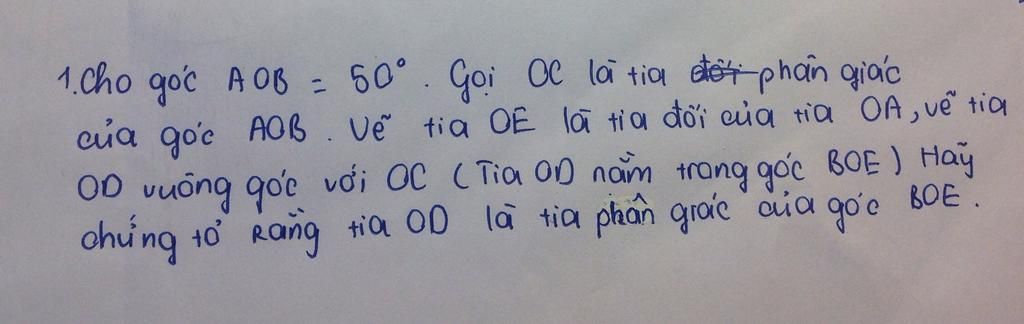 1. Cho góc AOB = 50°. Gọi OC là tia đối phân giác
của góc AOB. Vẽ tia OE là tia đối của tia OA, vẽ tia
OD vuông góc với OC (Tia OD nằm trong góc BOE) Hãy
chứng tỏ rằng tia OD là tia phân giác của góc BOE.